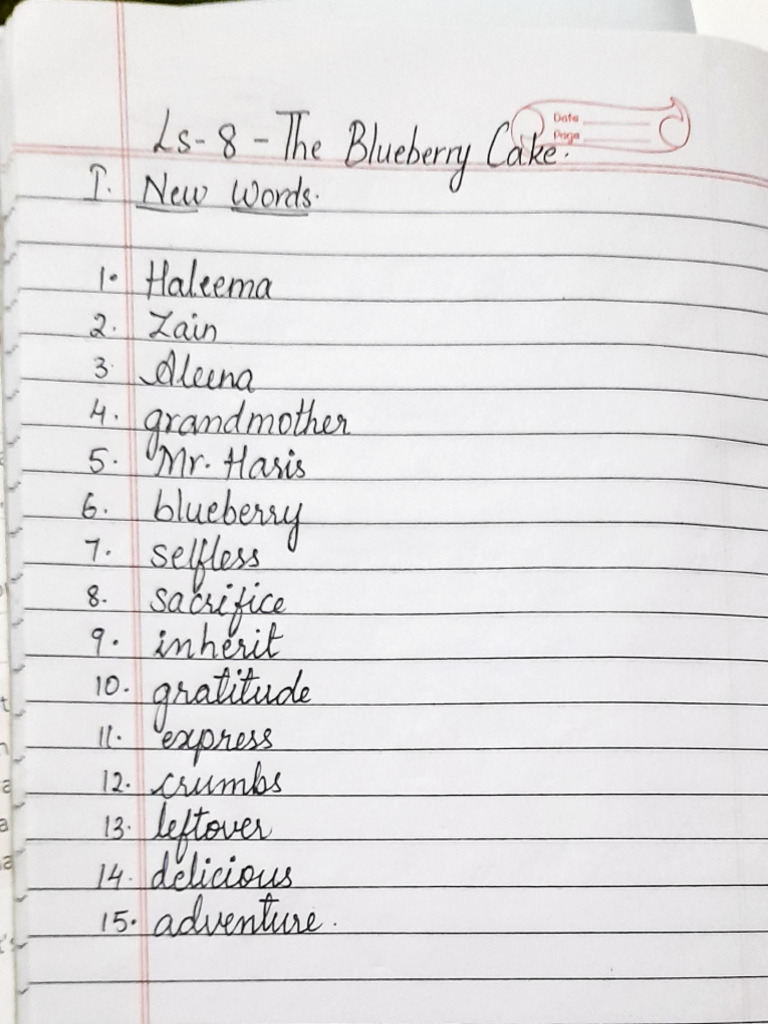 Date
Page
Ls-8-The Blueberry Cake.
I. New Words.
1. Haleema
2. Zain
3. Aleena
4. grandmother
5. Mr. Haris
6. blueberry
7. selfless
8. sacrifice
9. inherit
10. gratitude
11. express
12. crumbs
13. leftover
14. delicious
15. adventure.